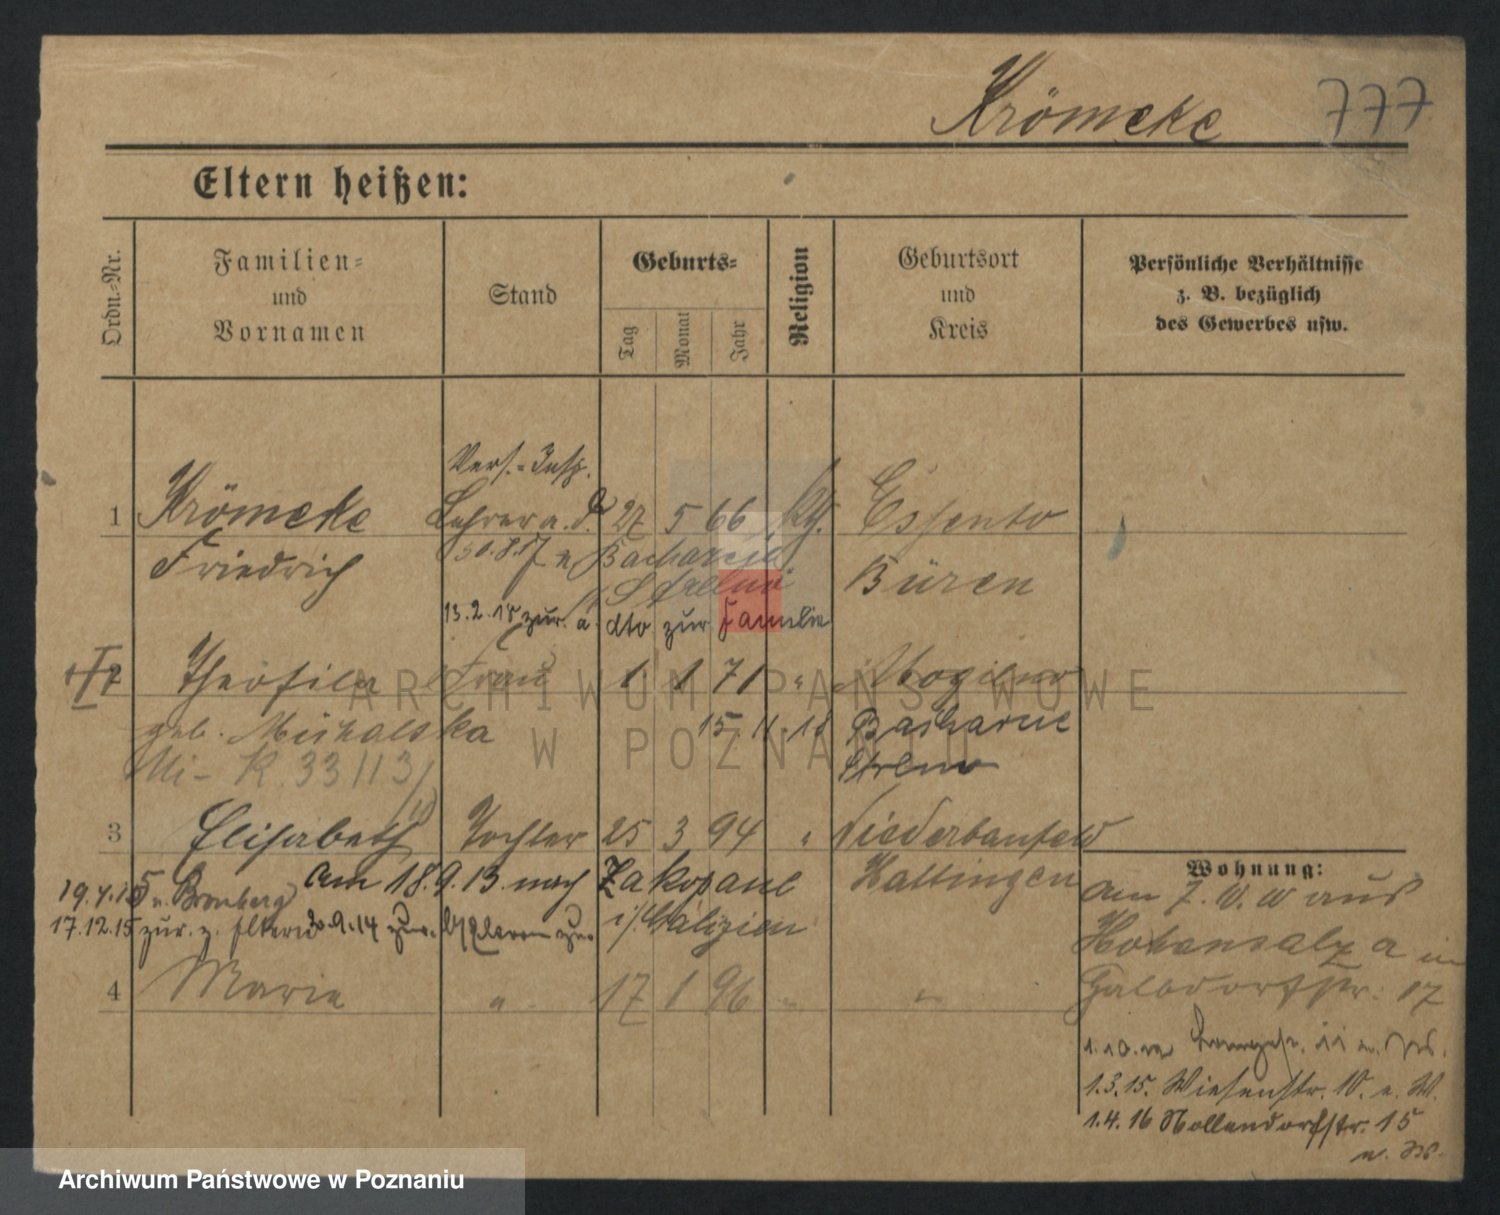 Krömeke 777
Eltern heißen:
Ordn.-Nr.
Familien-
und
Vornamen
Stand
Geburts-
Tag
Monat
Jahr
Religion
Geburtsort
und
Kreis
Persönliche Verhältnisse
z. B. bezüglich
des Gewerbes usw.
Vers.-Insp.
1 Krömeke Lehrer a. D. 27 5 66 Essento
Friedrich Büren
30.8.17 n Bacharcie
Strelno
13.2.18 zur. a. dto zur Familie
2 Theofila Frau 1 1 71 " Mogilno
geb. Michalska 15 11 18 Bacharcie
Mi- K. 33113 Strelno
3 Elisabeth Tochter 25 3 94 " Niederbonsfeld
Hattingen
am 18.9.13. nach Zakopane
i/Galizien
19.4.15 n. Bromberg
17.12.15 zur. z. Eltern
4 Marie " 17 1 96 " "
Wohnung:
am 7. aus
Hohensalza in
Galldorfstr. 17
1.10.
1.3.15. Wiesenstr. 10. b. W.
1.4.16 Nollendorfstr. 15
ARCHIWUM PAŃSTWOWE
W POZNANIU
Archiwum Państwowe w Poznaniu